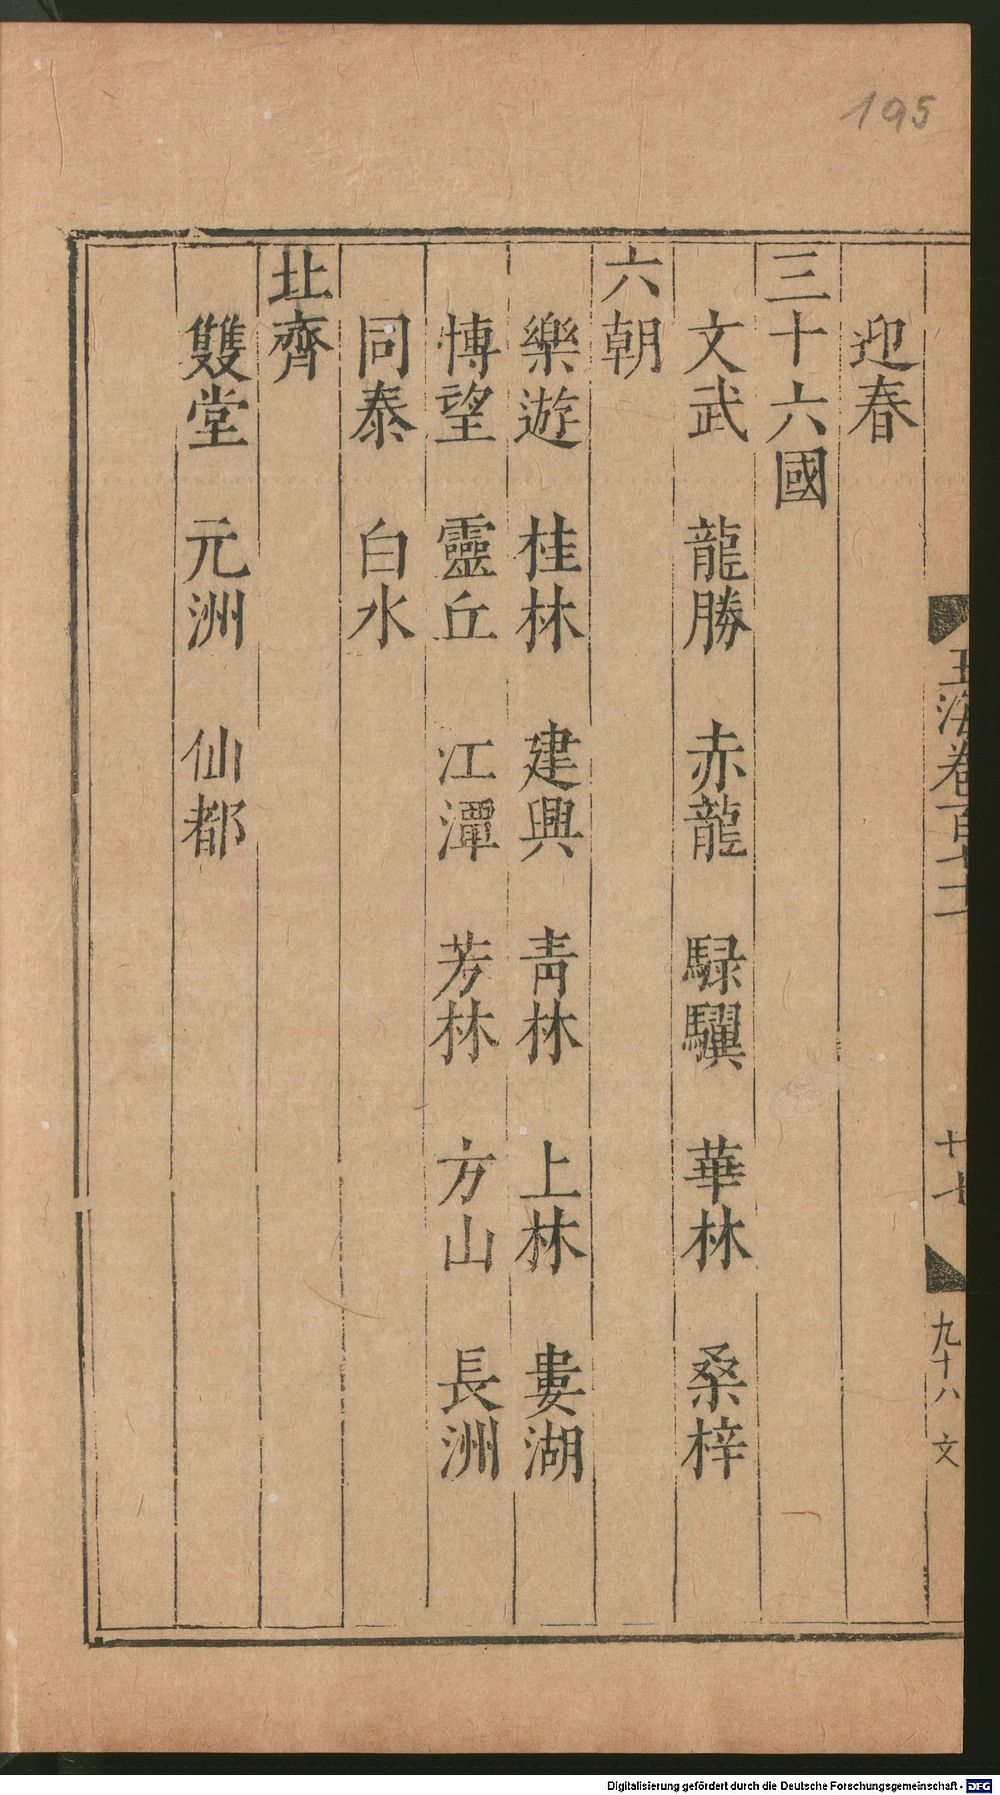 195
迎春
三十六國
文武 龍勝 赤龍 騄驥 華林 桑梓
六朝
樂遊 桂林 建興 靑林 上林 婁湖
博望 靈丘 江潭 芳林 方山 長洲
同泰 白水
北齊
雙堂 元洲 仙都
玉海卷百七十一
十七
九十八 文
Digitalisierung gefördert durch die Deutsche Forschungsgemeinschaft - DFG